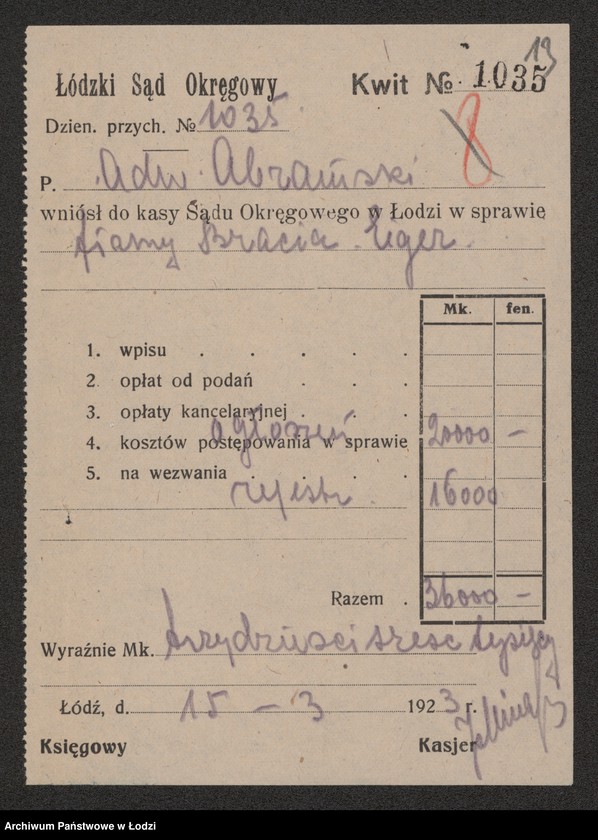 13
Łódzki Sąd Okręgowy Kwit № 1035
Dzien. przych. № 1035
8
P. Adw. Abramski
wniósł do kasy Sądu Okręgowego w Łodzi w sprawie
firmy Bracia Liger.
Mk. fen.
1. wpisu . . . . .
2. opłat od podań . . .
3. opłaty kancelaryjnej . . .
ogłoszeń
4. kosztów postępowania w sprawie 20000 —
5. na wezwania . . . .
rejestr. 16000
Razem . 36000 —
Wyraźnie Mk. trzydzieści sześć tysięcy
Łódź, d. 15 – 3 1923 r.
Księgowy Kasjer
Archiwum Państwowe w Łodzi